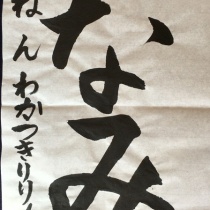 なみ
ねん わかつきりり